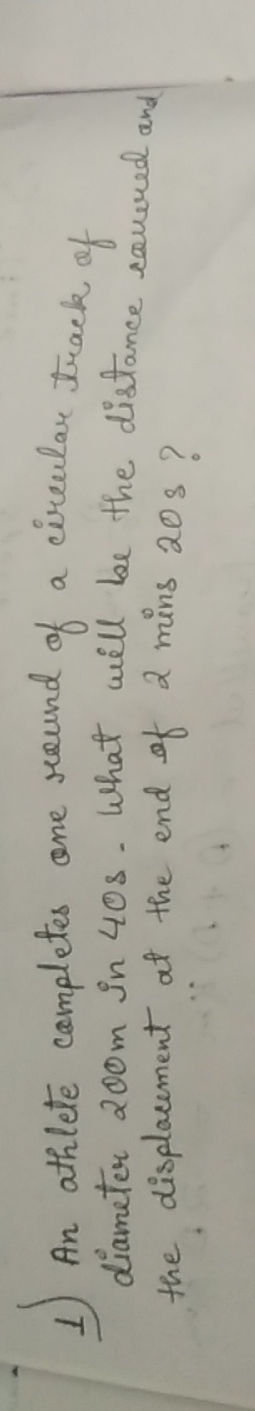 1) An athlete completes one round of a circular track of
diameter 200m in 40s. What will be the distance covered and
the displacement at the end of 2 mins 20s?